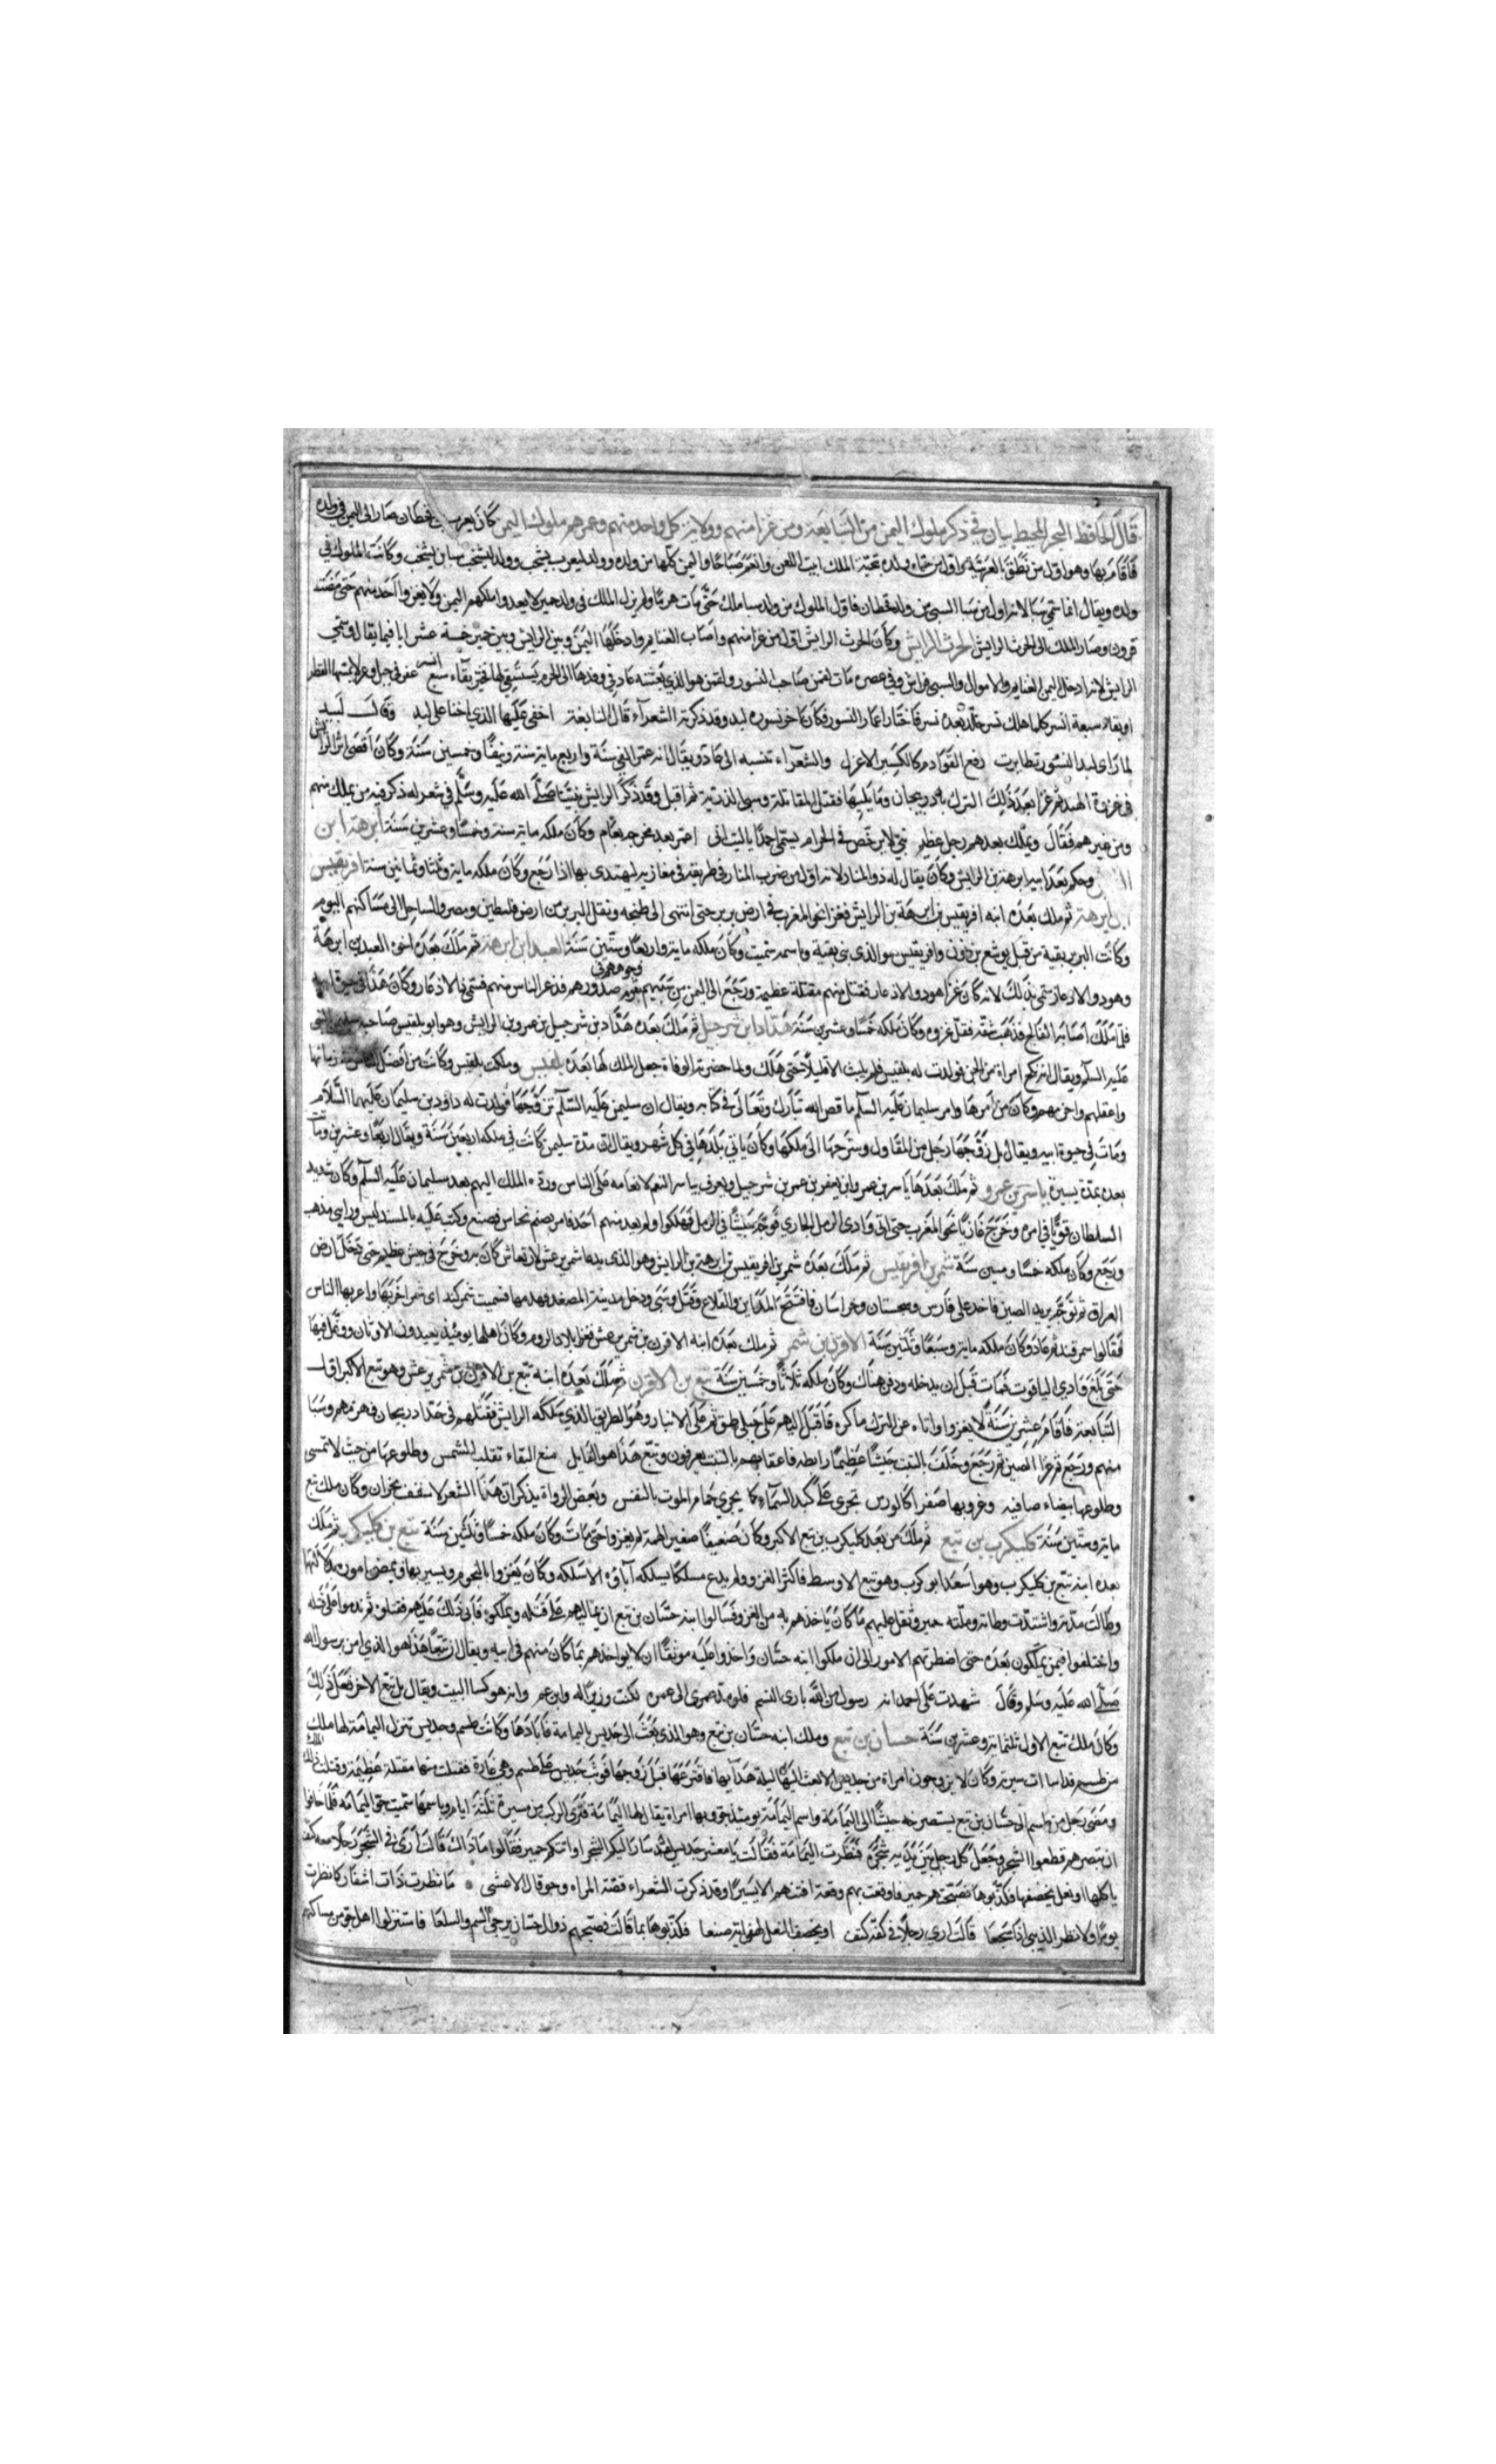 قال الحافظ البحر المحيط بيان في ذكر ملوك اليمن من التبابعة ومن غزا منهم وولاية كل واحد منهم وعمرهم ملوك اليمن كان يعرب بن قحطان صار الى اليمن في ولده
فاقام بها وهو اول من نطق بالعربية واول من حياه ولده بتحية الملك ابيت اللعن وانعم صباحا واليمن كلها من ولده وولد ليعرب يشجب وولد ليشجب سبا بن يشجب وكانت الملوك في
ولده ويقال انما سمي سبا لانه اول من سبا السبي من ولد قحطان فاول الملوك من ولد سبا ملك حتى مات هرما ولم يزل الملك في ولد حمير لا يعدوا ملكهم اليمن ولا يغزوا احد منهم حتى مضت
قرون وصار الملك الى الحرث الرايش الحرث الرايش وكان الحرث الرايش اول من غزا منهم واصاب الغنايم وادخلها اليمن وبين الرايش وبين حمير خمسة عشر ابا فيما يقال وسمي
الرايش لانه ادخل اليمن الغنايم والاموال والسبي فراش وفي عصره مات لقمن صاحب النسور ولقمن هو الذي بعثته عاد في وفدها الى الحرم يستسقي لها فخير بقاء سبع
او بقاء سبعة انسر كلما هلك نسر خلف بعده نسر فاختار اعمار النسور فكان اخر نسوره لبد وقد ذكرته الشعراء قال النابغة اخنى عليها الذي اخنا على لبد وقال لبيد
لما راى لبد النسور تطايرت رفع القوادم كالكسير الاعزل والشعراء تنسبه الى عاد ويقال انه عمر الفي سنة واربع ماية سنة ونيفا وخمسين سنة وكان اقصى اثر الرايش
في غزوة الهند ثم غزا بعد ذلك الترك باذربيجان وما يليها فقتل المقاتلة وسبى الذرية ثم اقبل وقد ذكر الرايش نبينا صلى الله عليه وسلم في شعر له ذكر فيه من يملك منهم
ومن غيرهم فقال ويملك بعدهم رجل عظيم نبي لا يرخص في الحرام يسمى احمدا يا ليت اني اعمر بعد مخرجه بعام وكان ملكه ماية سنة وخمسا وعشرين سنة ابرهة ابن
وحكم بعده ابنه ابرهة بن الرايش وكان يقال له ذو المنار لانه اول من ضرب المنار في طريقه في مغازيه ليهتدى بها اذا رجع وكان ملكه ماية وثلثا وثمانين سنة افريقيس
ابن ابرهة ثم ملك بعده ابنه افريقيس بن ابرهة بن الرايش فغزا نحو المغرب في ارض بربر حتى انتهى الى طنجه ونقل البربر من ارض فلسطين ومصر والساحل الى مساكنهم اليوم
وكانت البربر بقية من قبل يوشع بن نون وافريقيس هو الذي بنى افريقية وباسمه سميت وكان ملكه ماية واربعا وستين سنة العبد ابن ابرهة ثم ملك بعده اخوه العبد بن ابرهة
وهو ذو الاذعار سمي بذلك لانه كان غزا فقتل منهم مقتلة عظيمة ورجع الى اليمن من سبيهم بقوم وجوههم في صدورهم فذعر الناس منهم فسمي ذا الاذعار وكان هذا في حيوة ابيه
فلما ملك اصابه الفالج فذهب شقه فقل غزوه وكان ملكه خمسا وعشرين سنة هداد ابن شرحبيل ثم ملك بعده هداد بن شرحبيل بن عمرو بن الرايش وهو ابو بلقيس صاحبه سليمن النبي
عليه السلام ويقال انه نكح امراة من الجن فولدت له بلقيس فلم يلبث الا قليلا حتى هلك ولما حضرته الوفاة جعل الملك لها بعده بلقيس وملكت بلقيس وكانت من افضل الناس في زمانها
واعقلهم واحزمهم وكان من امرها وامر سليمان عليه السلام ما قص الله تبارك وتعالى في كتابه ويقال ان سليمن عليه السلام تزوجها فولدت له داود بن سليمان عليهما السلام
ومات في حيوة ابيه ويقال بل زوجها رجل من المقاول وسرحها الى ملكها وكان ياتي بلدها في كل شهر ويقال ان مدة سليمن كانت في ملكه اربعين سنة ويقال اربعا وعشرين ومات
بعده بمدة يسيرة ياسر بن عمرو ثم ملك بعدها ياسر بن عمرو ابن يعفر بن عمرو بن شرحبيل ويعرف بياسر النعم لانعامه على الناس ورد الملك اليهم بعد سليمان عليه السلام وكان شديد
السلطان قويا في امره وخرج غازيا نحو المغرب حتى اتى وادي الرمل الجاري فوجه جيشا في الرمل فهلكوا ولم يعد منهم احد فامر بصنم نحاس فصنع وكتب عليه بالمسند ليس ورايي مذهب
ورجع وكان ملكه خمسا وسبين سنة شمر بن افريقيس ثم ملك بعده شمر بن افريقيس بن ابرهة بن الرايش وهو الذي يدعا شمر يرعش لارتعاش كان به وخرج في جيش عظيم حتى دخل ارض
العراق ثم توجه يريد الصين فاخذ على فارس وسجستان وخراسان فافتتح المداين والقلاع وقتل وسبى ودخل مدينة الصغد فهدمها فسميت شمر كند اى شمر اخربها واعربها الناس
فقالوا سمرقند ثم عاد وكان ملكه ماية وسبعا وثلثين سنة الاقرن بن شمر ثم ملك بعده ابنه الاقرن بن شمر يرعش فغزا بلاد الروم وكان اهلها يومئذ يعبدون الاوثان ووغل فيها
حتى بلغ وادي الياقوت فمات قبل ان يدخله ودفن هناك وكان ملكه ثلاثا وخمسين سنة تبع بن الاقرن ثم ملك بعده ابنه تبع بن الاقرن بن شمر يرعش وهو تبع الاكبر اول
التبابعة فاقام عشرين سنة لا يغزوا واتاه عن الترك ما كره فاقبل اليهم على جبلي طى ثم على الانبار وهو الطريق الذي سلكه الرايش فقتلهم في حد اذربيجان فهزمهم وسبا
منهم ورجع ثم غزا الصين ثم رجع وخلف بالتبت جيشا عظيما رابطه فاعقابهم بالتبت يعرفون وتبع هذا هو القايل منع البقاء تقلب الشمس وطلوعها من حيث لا تمسى
وطلوعها بيضاء صافيه وغروبها صفرا كالورس تجري على كبد السماء كما يجري حمام الموت بالنفس وبعض الرواة يذكر ان هذا الشعر لاسقف نجران وكان ملك تبع
ماية وستين سنة كليكرب بن تبع ثم ملك من بعده كليكرب بن تبع الاكبر وكان ضعيفا صغير الهمة لم يغزو حتى مات وكان ملكه خمسا وثلثين سنة تبع بن كليكرب ثم ملك
بعده ابنه تبع بن كليكرب وهو اسعد ابو كرب وهو تبع الاوسط فاكثر الغزو ولم يدع مسلكا يسلكه آباؤه الا سلكه وكان يغزوا بالنجوم ويسير بها ويمضي اموره بدلالتها
وطالت مدته واشتدت وطاته وملته حمير وثقل عليهم ما كان ياخذهم به من الغزو فسالوا ابنه حسان بن تبع ان يماليهم على قتله ويملكوه فابى ذلك عليهم فقتلوه ثم ندموا على قتله
واختلفوا فيمن يملكون بعده حتى اضطرتهم الامور الى ان ملكوا ابنه حسان واخذوا عليه موثقا ان لا يواخذهم بما كان منهم في ابيه ويقال ان تبعا هذا هو الذي امن برسول الله
صلى الله عليه وسلم وقال شهدت على احمد انه رسول من الله بارى النسم فلو مد عمرى الى عمره لكنت وزيرا له وابن عم وانه هو كسا البيت ويقال بل تبع الاخر فعل ذلك
وكان ملك تبع الاول ثلثماية وعشرين سنة حسان بن تبع وملك ابنه حسان بن تبع وهو الذي بعث الى جديس باليمامة فابادها وكانت طسم وجديس تنزل اليمامة لها ملك
من طسم قد اسات سيرته وكان لا يزوجون امراة من جديس الا بعث اليها ليلة هدايها فافترعها قبل زوجها فوثبت جديس على طسم وهي غارة فقتلت منها مقتلة عظيمة وقتلت ذلك الملك
ومضى رجل من طسم الى حسان بن تبع يستصرخه جيشا الى اليمامة واسم اليمامة يومئذ جو وبها امراة يقال لها اليمامة فترى الركب من مسيرة ثلثة ايام وباسمها سميت جو اليمامه فلما خافوا
ان تبصرهم قطعوا الشجر وجعل كل رجل بين يديه شجرة فنظرت اليمامة فقالت يا معشر جديس لقد سار اليكم الشجر او اتتكم حمير فقالوا ما ذاك قالت ارى في الشجر رجلا معه كتف
ياكلها او نعل يخصفها فكذبوها فصبحتهم حمير فاوقعت بهم وقعة افنتهم الا يسيرا وقد ذكرت الشعراء قصة المراه وجو قال الاعشى ما نظرت ذات اشفار كما نظرت
يوما ولا نظر الذيبي اذا سجعا قالت ارى رجلا في كفه كتف او يخصف النعل لهفي اية صنعا فكذبوها بما قالت فصبحهم ذو ال حسان يزجي السم والسلعا فاستنزلوا اهل جو من مساكنهم